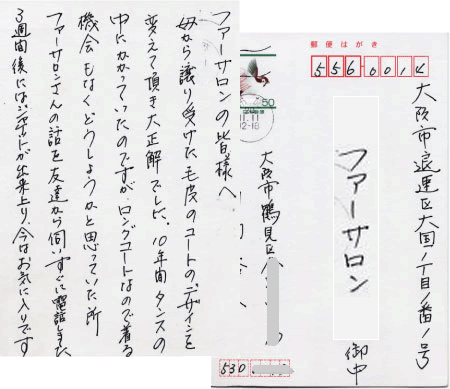 ファーサロンの皆様へ
母から譲り受けた毛皮のコートのデザインを
変えて頂き大正解でした。10年間タンスの
中にかかっていたのですが、ロングコートなので着る
機会もなくどうしようかと思っていた所
ファーサロンさんの話を友達から伺いすぐに電話しました
3週間後にはジャケットが出来上り、今はお気に入りです
郵便はがき
556-0014
大阪市浪速区大国1丁目1番1号
ファーサロン
御中
50
大阪市鶴見区
530